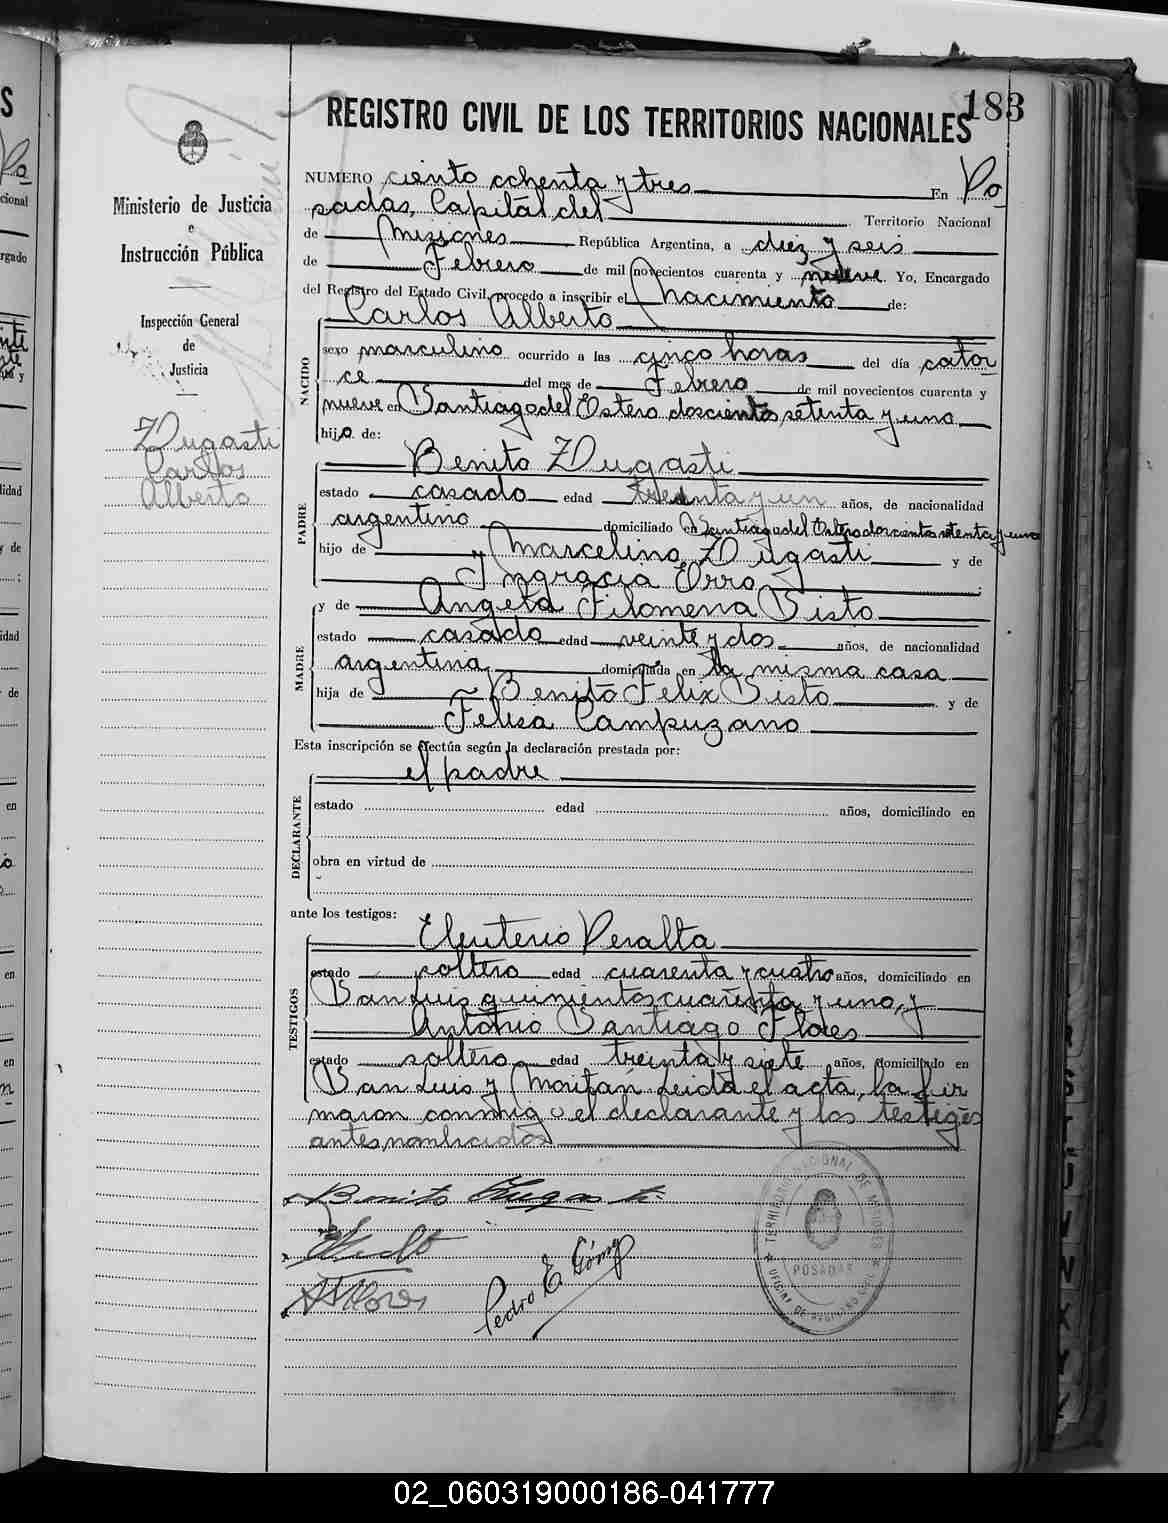 183
REGISTRO CIVIL DE LOS TERRITORIOS NACIONALES
Ministerio de Justicia
e
Instrucción Pública
Inspección General
de
Justicia
Zugasti
Carlos
Alberto
NUMERO ciento ochenta y tres En Po
sadas, Capital del Territorio Nacional
de Misiones República Argentina, a diez y seis
de Febrero de mil novecientos cuarenta y nueve. Yo, Encargado
del Registro del Estado Civil, procedo a inscribir el Nacimiento de:
Carlos Alberto
NACIDO
sexo masculino ocurrido a las cinco horas del día cator
ce del mes de Febrero de mil novecientos cuarenta y
nueve en Santiago del Estero doscientos setenta y uno
hijo de:
Benito Zugasti
PADRE
estado casado edad treinta y un años, de nacionalidad
argentino domiciliado en Santiago del Estero doscientos setenta y uno
hijo de Marcelino Zugasti y de
Yngracia Erro
y de Angela Filomena Sisto
MADRE
estado casado edad veinte y dos años, de nacionalidad
argentina domiciliada en la misma casa
hija de Benito Felix Sisto y de
Felisa Campuzano
Esta inscripción se efectúa según la declaración prestada por:
el padre
DECLARANTE
estado edad años, domiciliado en
obra en virtud de
ante los testigos:
Eleuterio Peralta
TESTIGOS
estado soltero edad cuarenta y cuatro años, domiciliado en
San Luis quinientos cuarenta y uno, y
Antonio Santiago Flores
estado soltero edad treinta y siete años, domiciliado en
San Luis y Moritán Leida el acta, la fir
maron conmigo el declarante y los testigos
antes nombrados
Benito Zugasti
A S Flores
Pedro E. Gómez
TERRITORIO NACIONAL DE MISIONES
POSADAS
OFICINA DE REGISTRO CIVIL
02_060319000186-041777